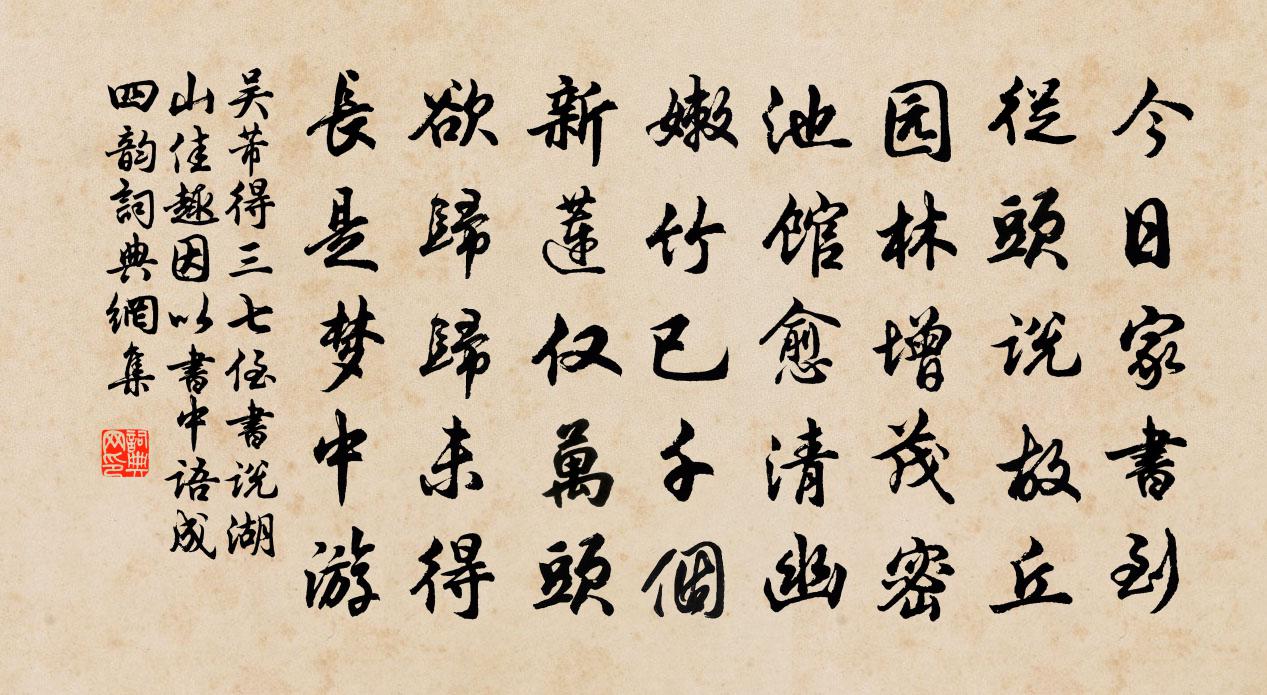 今日家書到
從頭说故丘
园林增茂密
池馆愈清幽
嫩竹已千個
新蓮仅萬頭
欲歸歸未得
長是梦中游
吴芾得三七侄書说湖
山佳趣因以書中语成
四韵詞典網集
詞典
网印